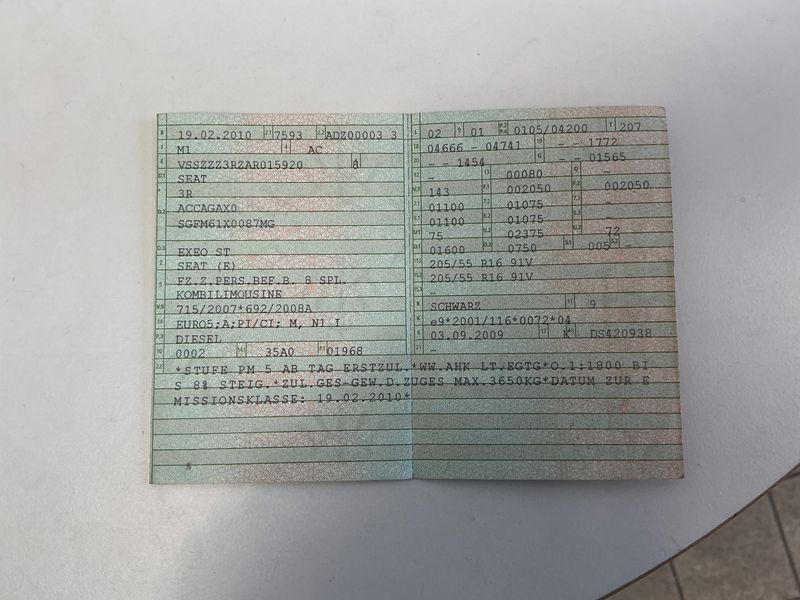 B 19.02.2010 2.1 7593 2.2 ADZ00003 3
J M1 4 AC
E VSSZZZ3RZAR015920 8
D.1 SEAT
3R
D.2 ACCAGAX0
SGFM61X0087MG
D.3 EXEO ST
2 SEAT (E)
5 FZ.Z.PERS.BEF.B. 8 SPL.
KOMBILIMOUSINE
V.9 715/2007*692/2008A
14 EURO5;A;PI/CI; M, N1 I
P.3 DIESEL
10 0002 14.1 35A0 P.1 01968
L 02 9 01 P.2 P.4 0105/04200 T 207
18 04666 - 04741 19 - - 1772
20 - - 1454 G - - 01565
12 - 13 00080 Q -
V.7 143 F.1 002050 F.2 002050
7.1 01100 7.2 01075 7.3 -
8.1 01100 8.2 01075 8.3 -
U.1 75 U.2 02375 U.3 72
O.1 01600 O.2 0750 S.1 005 S.2 -
205/55 R16 91V
205/55 R16 91V
-
R SCHWARZ 11 9
K e9*2001/116*0072*04
6 03.09.2009 17 K 16 DS420938
21 -
22 *STUFE PM 5 AB TAG ERSTZUL.*WW.AHK LT.EGTG*O.1:1800 BI
S 8% STEIG.*ZUL.GES-GEW.D.ZUGES MAX.3650KG*DATUM ZUR E
MISSIONSKLASSE: 19.02.2010*